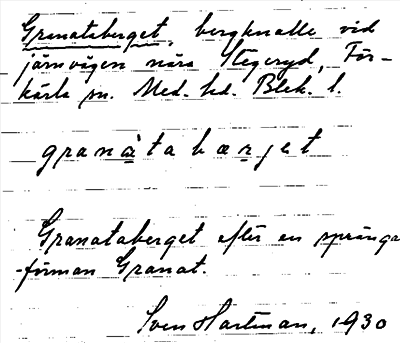 Granataberget, bergknalle vid
järnvägen nära Stegeryd, För-
kärla sn. Med. hd. Blek. l.
granàtabærjet
Granataberget efter en sprängar-
förman Granat.
Sven Hartman, 1930